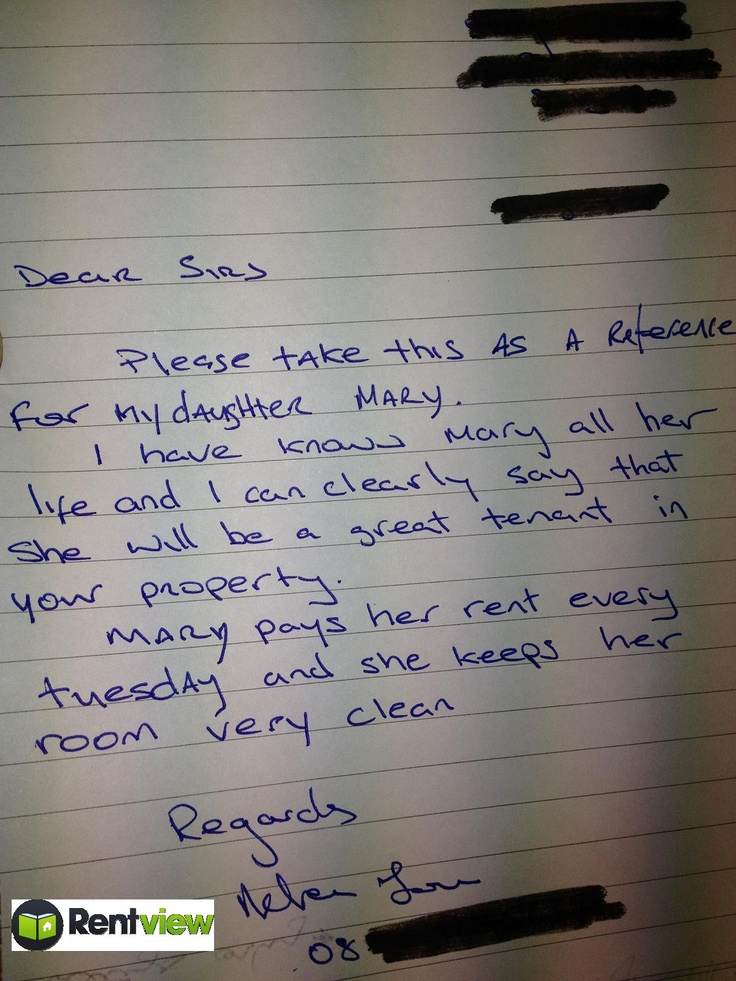 Dear Sirs
Please take this AS A Reference
For My daughter MARY.
I have known Mary all her
life and I can clearly say that
She will be a great tenant in
your property.
MARY pays her rent every
tuesday and she keeps her
room very clean
Regards
08
Rentview